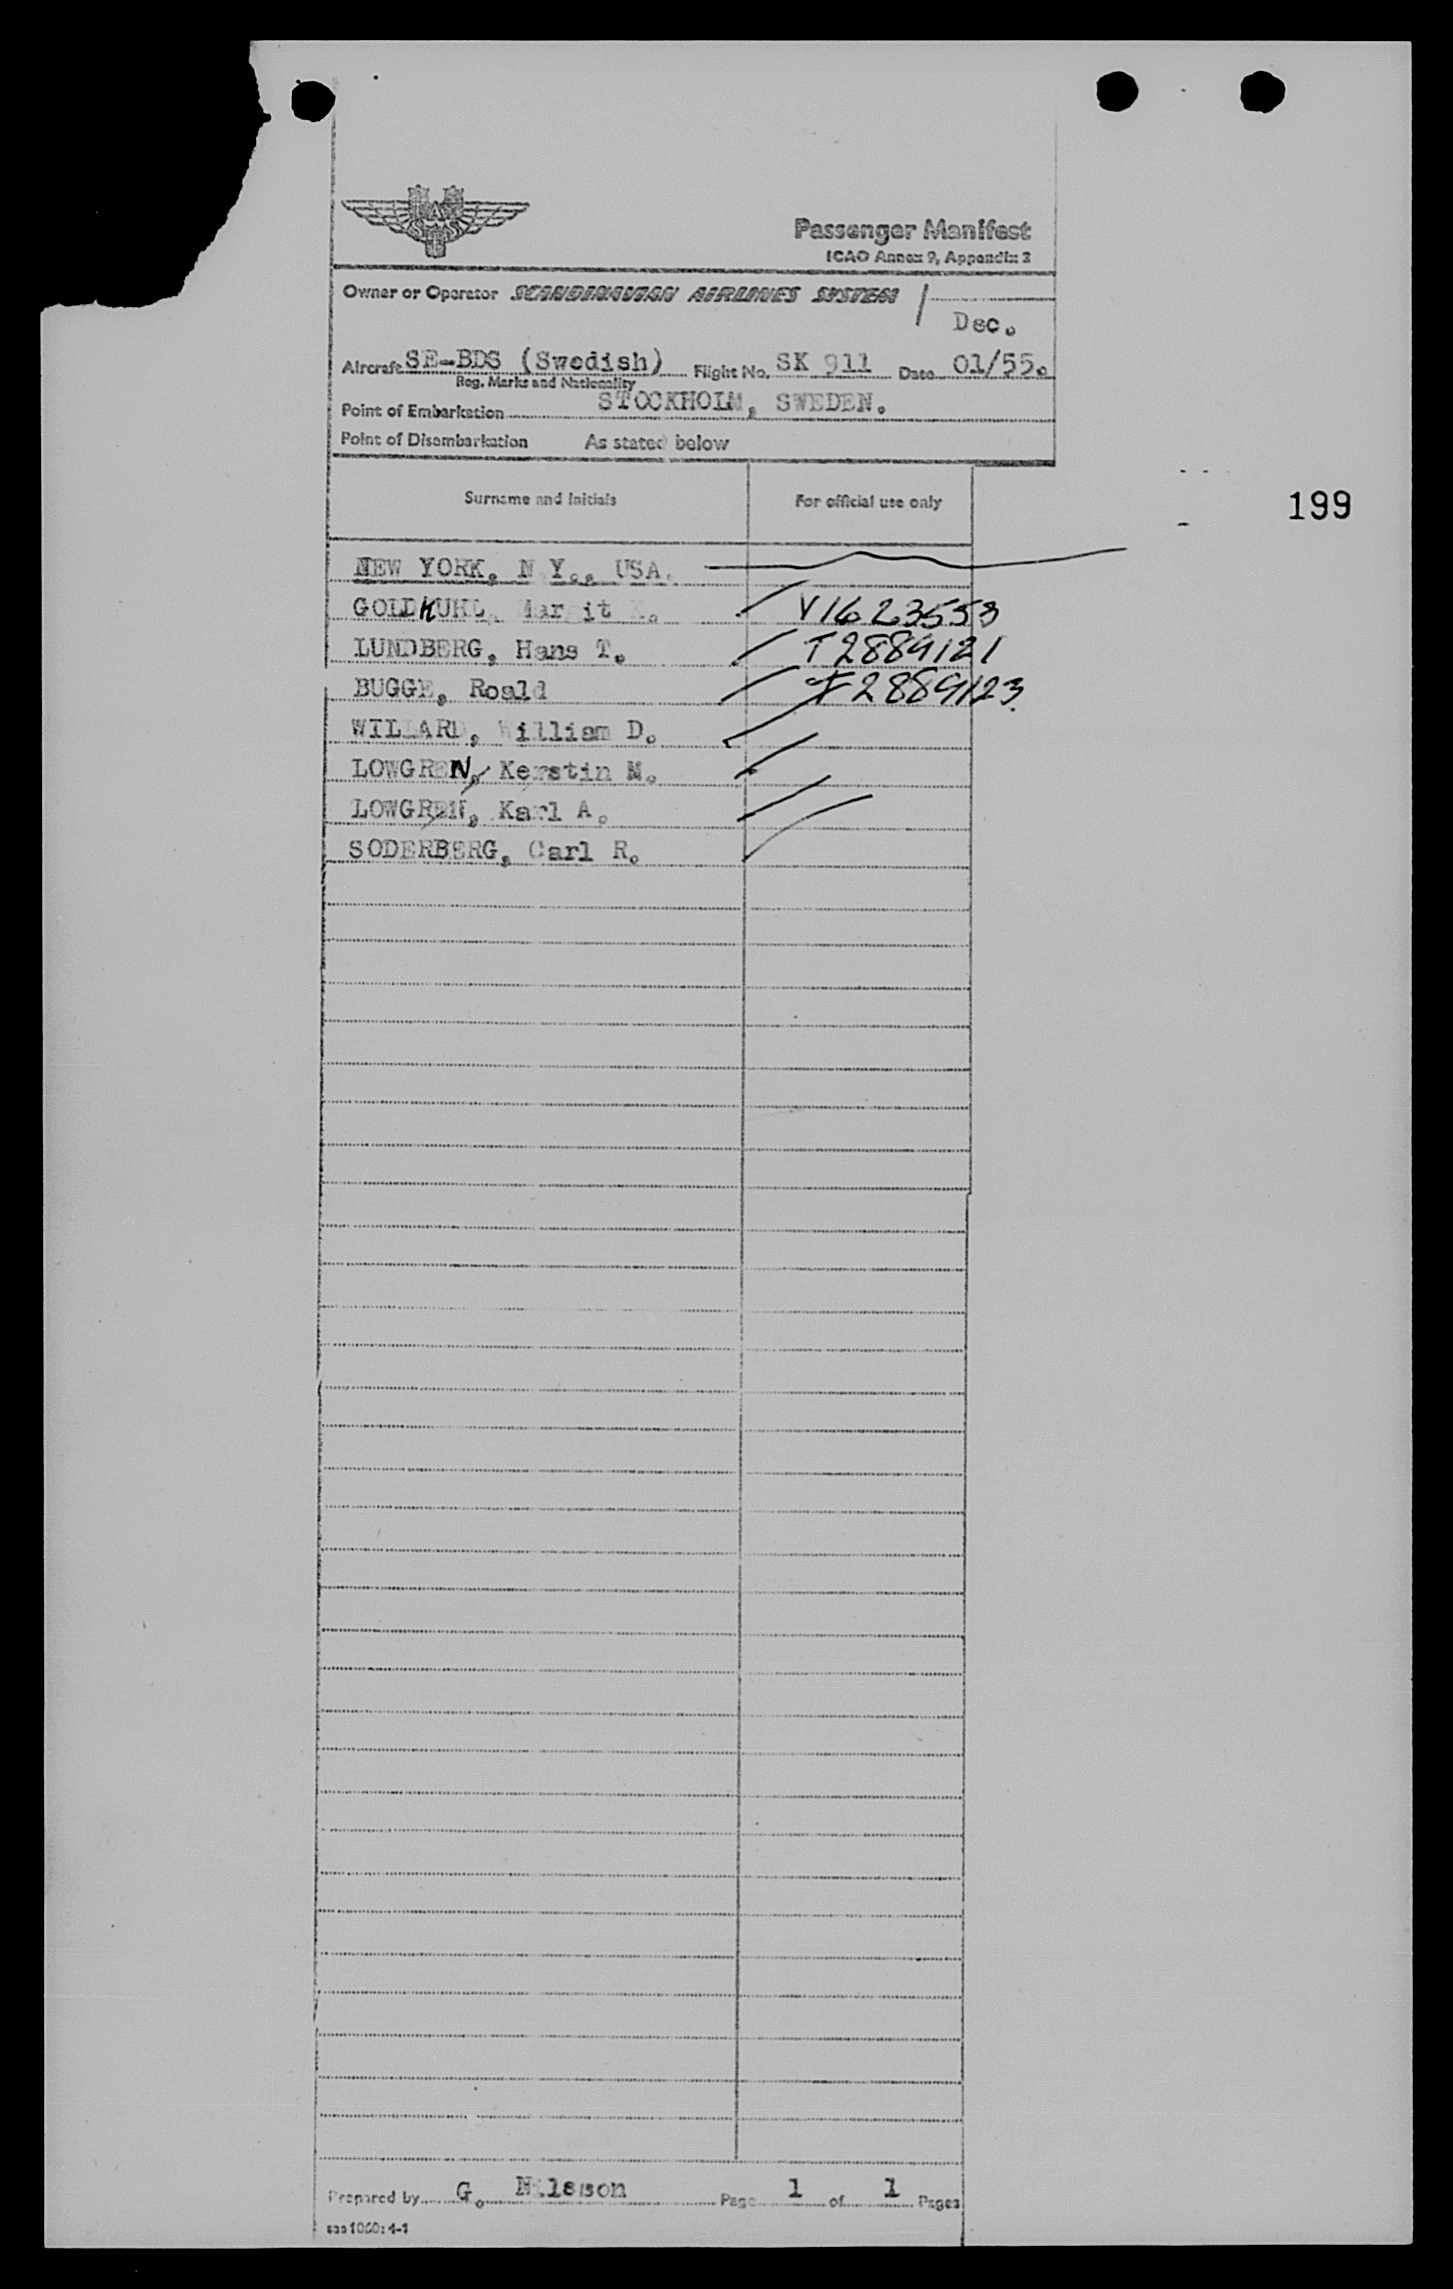 SAS
Passenger Manifest
ICAO Annex 9, Appendix 3
Owner or Operator SCANDINAVIAN AIRLINES SYSTEM
Dec.
Aircraft SE-BDS (Swedish) Flight No. SK 911 Date 01/55.
Reg. Marks and Nationality
Point of Embarkation STOCKHOLM, SWEDEN.
Point of Disembarkation As stated below
Surname and Initials For official use only
199
NEW YORK, N Y., USA.
GOLDKUHL, Margit V1623553
LUNDBERG, Hans T. T2889121
BUGGE, Roald T2889123
WILLARD, William D.
LOWGREN, Kerstin M.
LOWGREN, Karl A.
SODERBERG, Carl R.
Prepared by G. Nilsson Page 1 of 1 Pages
sas 1060:4-1